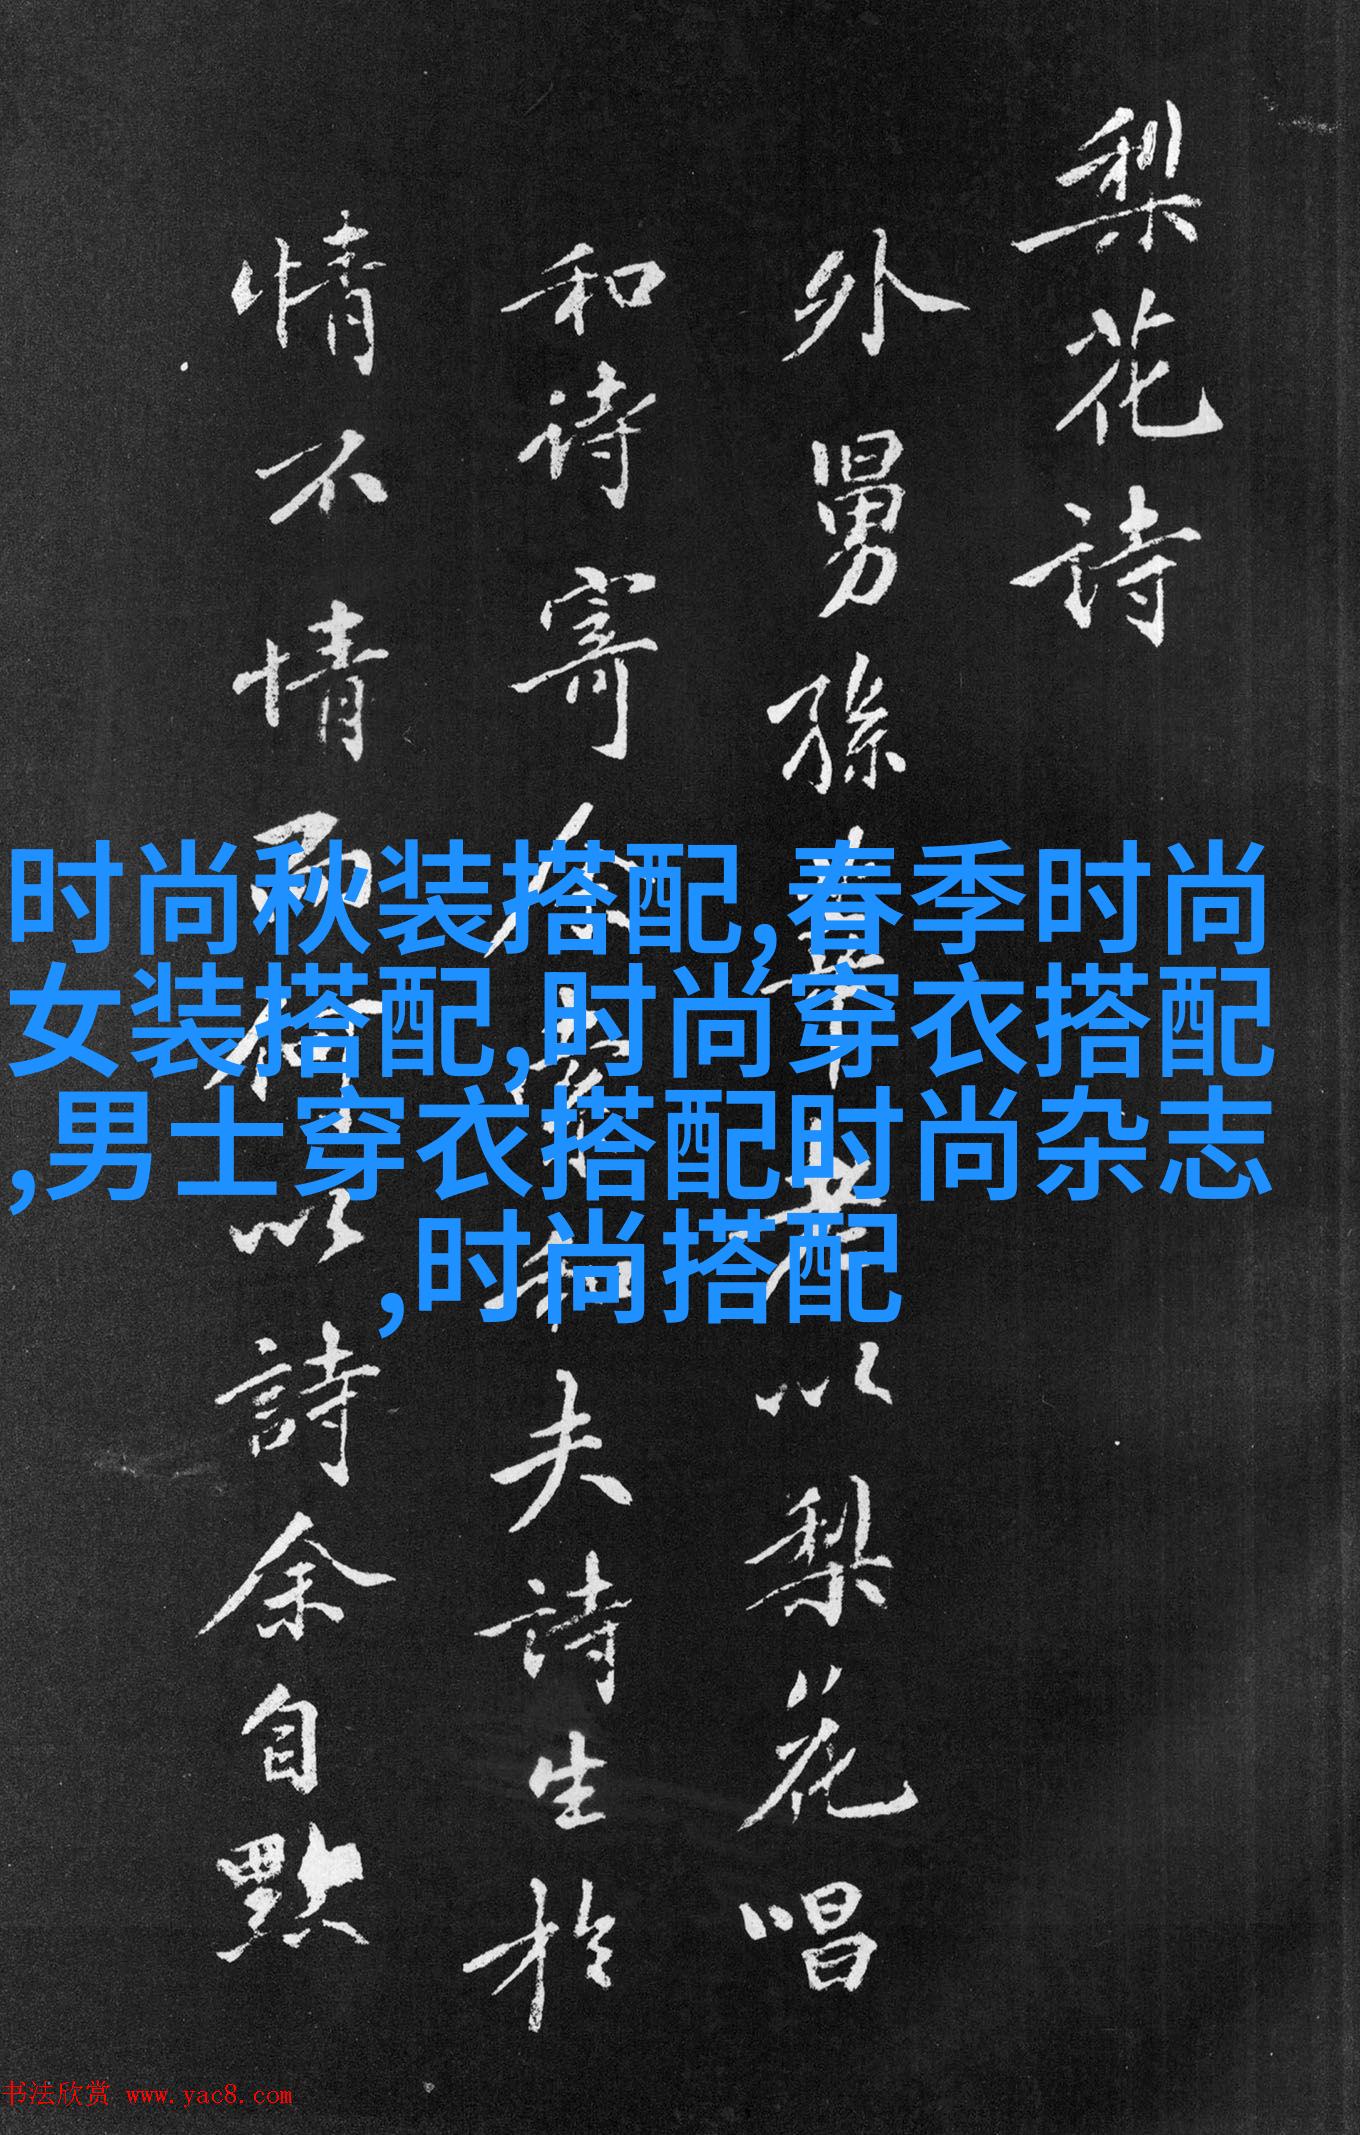 梨花诗
外舅孫莘老以梨花唱
和诗寄余余當和夫诗生於
情不情而何以詩余自黙
时尚秋装搭配,春季时尚
女装搭配,时尚穿衣搭配
,男士穿衣搭配时尚杂志
,时尚搭配
书法欣赏 www.yac8.com